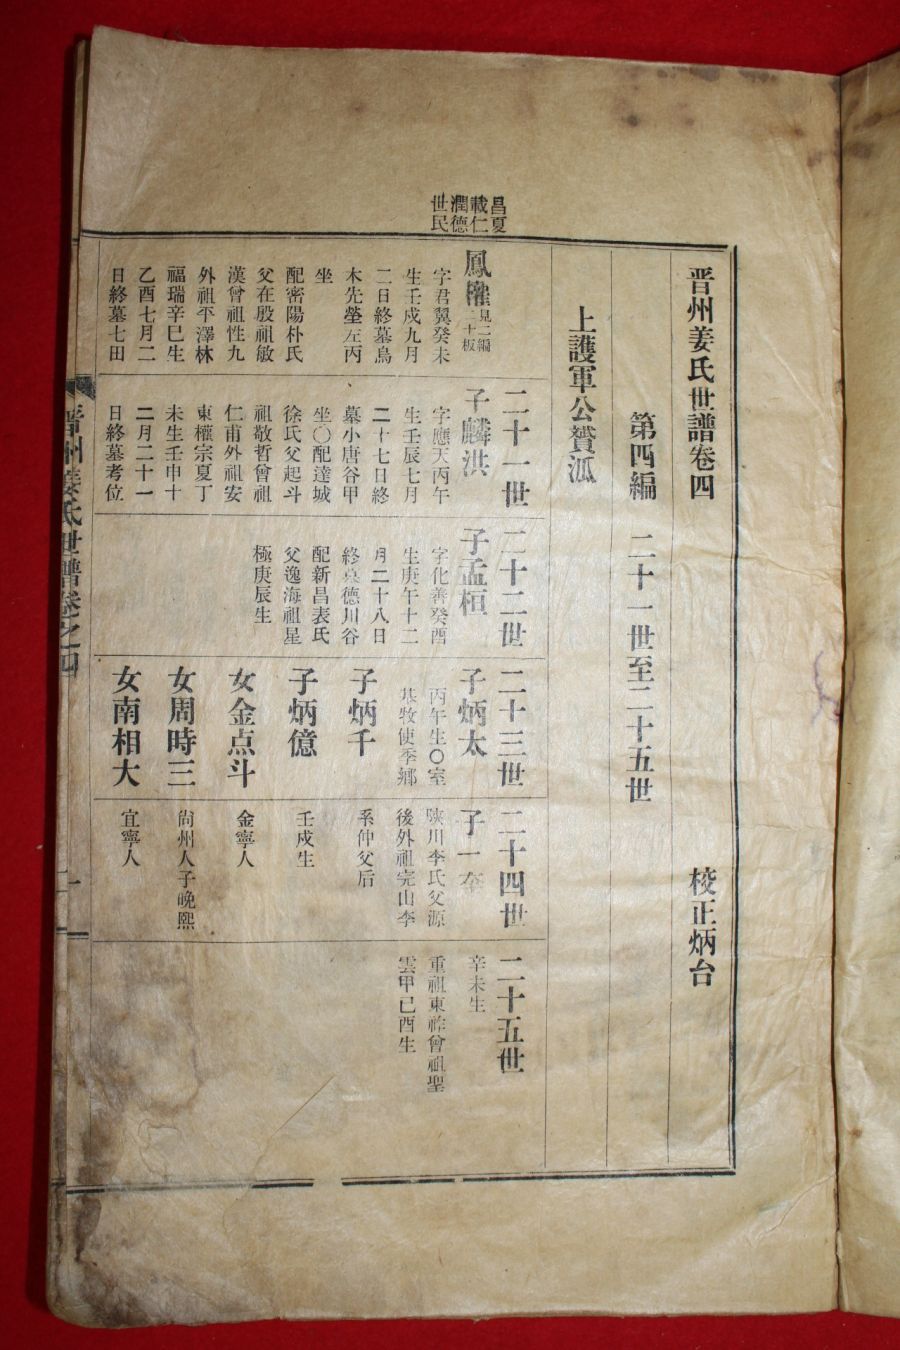 昌夏
載仁
潤德
世民
晋州姜氏世譜卷四
校正炳台
第四編
二十一世至二十五世
上護軍公贇派
鳳權
見二編
二十板
字君翼癸未
生壬戌九月
二日終墓鳥
木先塋左丙
坐
配密陽朴氏
父在殷祖敏
漢曾祖性九
外祖平澤林
福瑞辛巳生
乙酉七月二
日終墓七田
二十一世
子麟洪
字應天丙午
生壬辰七月
二十七日終
墓小唐谷甲
坐〇配達城
徐氏父起斗
祖敬哲曾祖
仁甫外祖安
東權宗夏丁
未生壬申十
二月二十一
日終墓考位
二十二世
子孟桓
字化善癸酉
生庚午十二
月二十八日
終墓德川谷
配新昌表氏
父逸海祖星
極庚辰生
二十三世
子炳太
丙午生〇室
恭牧使季鄉
子炳千
子炳億
女金点斗
女周時三
女南相大
二十四世
子一奎
陜川李氏父源
後外祖完山李
系仲父后
壬戌生
金寧人
尙州人子晩熙
宜寧人
二十五世
辛未生
重祖東祚曾祖聖
雲甲已酉生
晋州姜氏世譜卷之四
一